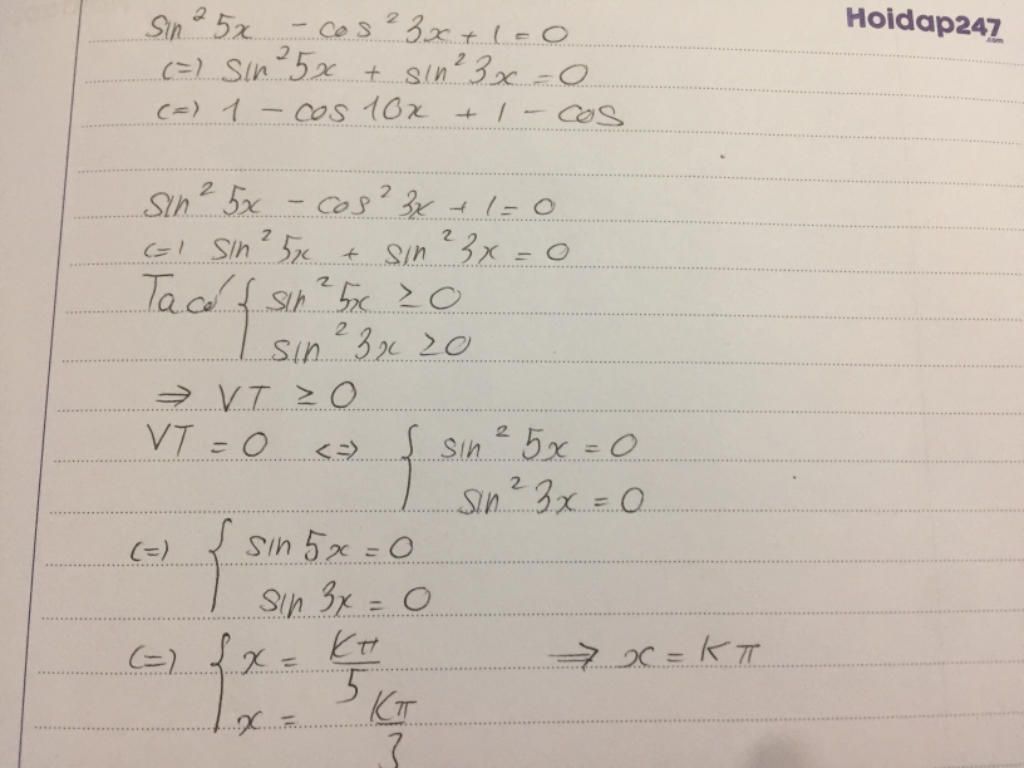 Hoidap247
.com
sin² 5x - cos² 3x + 1 = 0
(=) sin² 5x + sin² 3x = 0
(=) 1 - cos 10x + 1 - cos
sin² 5x - cos² 3x + 1 = 0
(=) sin² 5x + sin² 3x = 0
Ta có { sin² 5x ≥ 0
sin² 3x ≥ 0
⇒ VT ≥ 0
VT = 0 <=> { sin² 5x = 0
sin² 3x = 0
(=) { sin 5x = 0
sin 3x = 0
(=) { x = Kπ/5 ⇒ x = Kπ
x = Kπ/3